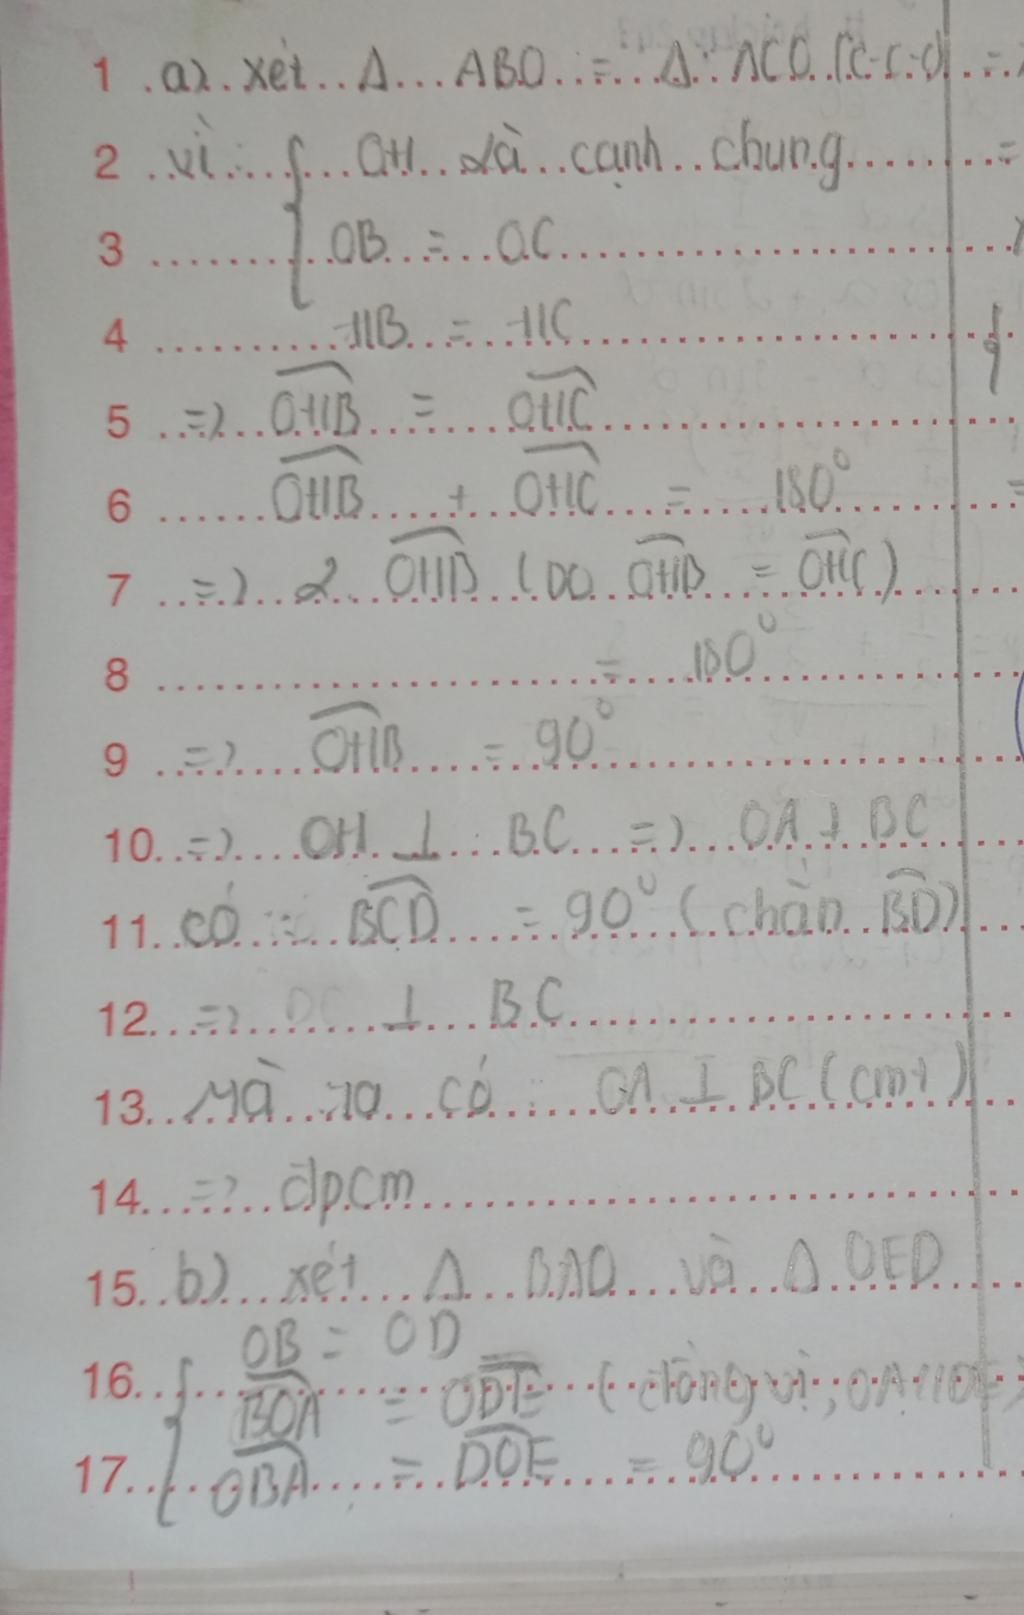 1 a) xét Δ ABO = Δ ACO (c-c-c) =
2 vì: { OH là cạnh chung =
3 OB = OC
4 HB = HC {
5 => OHB = OHC
6 OHB + OHC = 180° =
7 => 2. OHB (DO OHB = OHC)
8 = 180°
9 => OHB = 90°
10 => OH ⊥ BC => OA ⊥ BC
11 có: BCD = 90° (chắn BD)
12 => DC ⊥ BC
13 Mà ta có: OA ⊥ BC (cmt)
14 => đpcm
15 b) xét Δ BAO và Δ OED
OB = OD
16 { BOA = ODE (đồng vị; OA//DE)
17 OBA = DOE = 90°